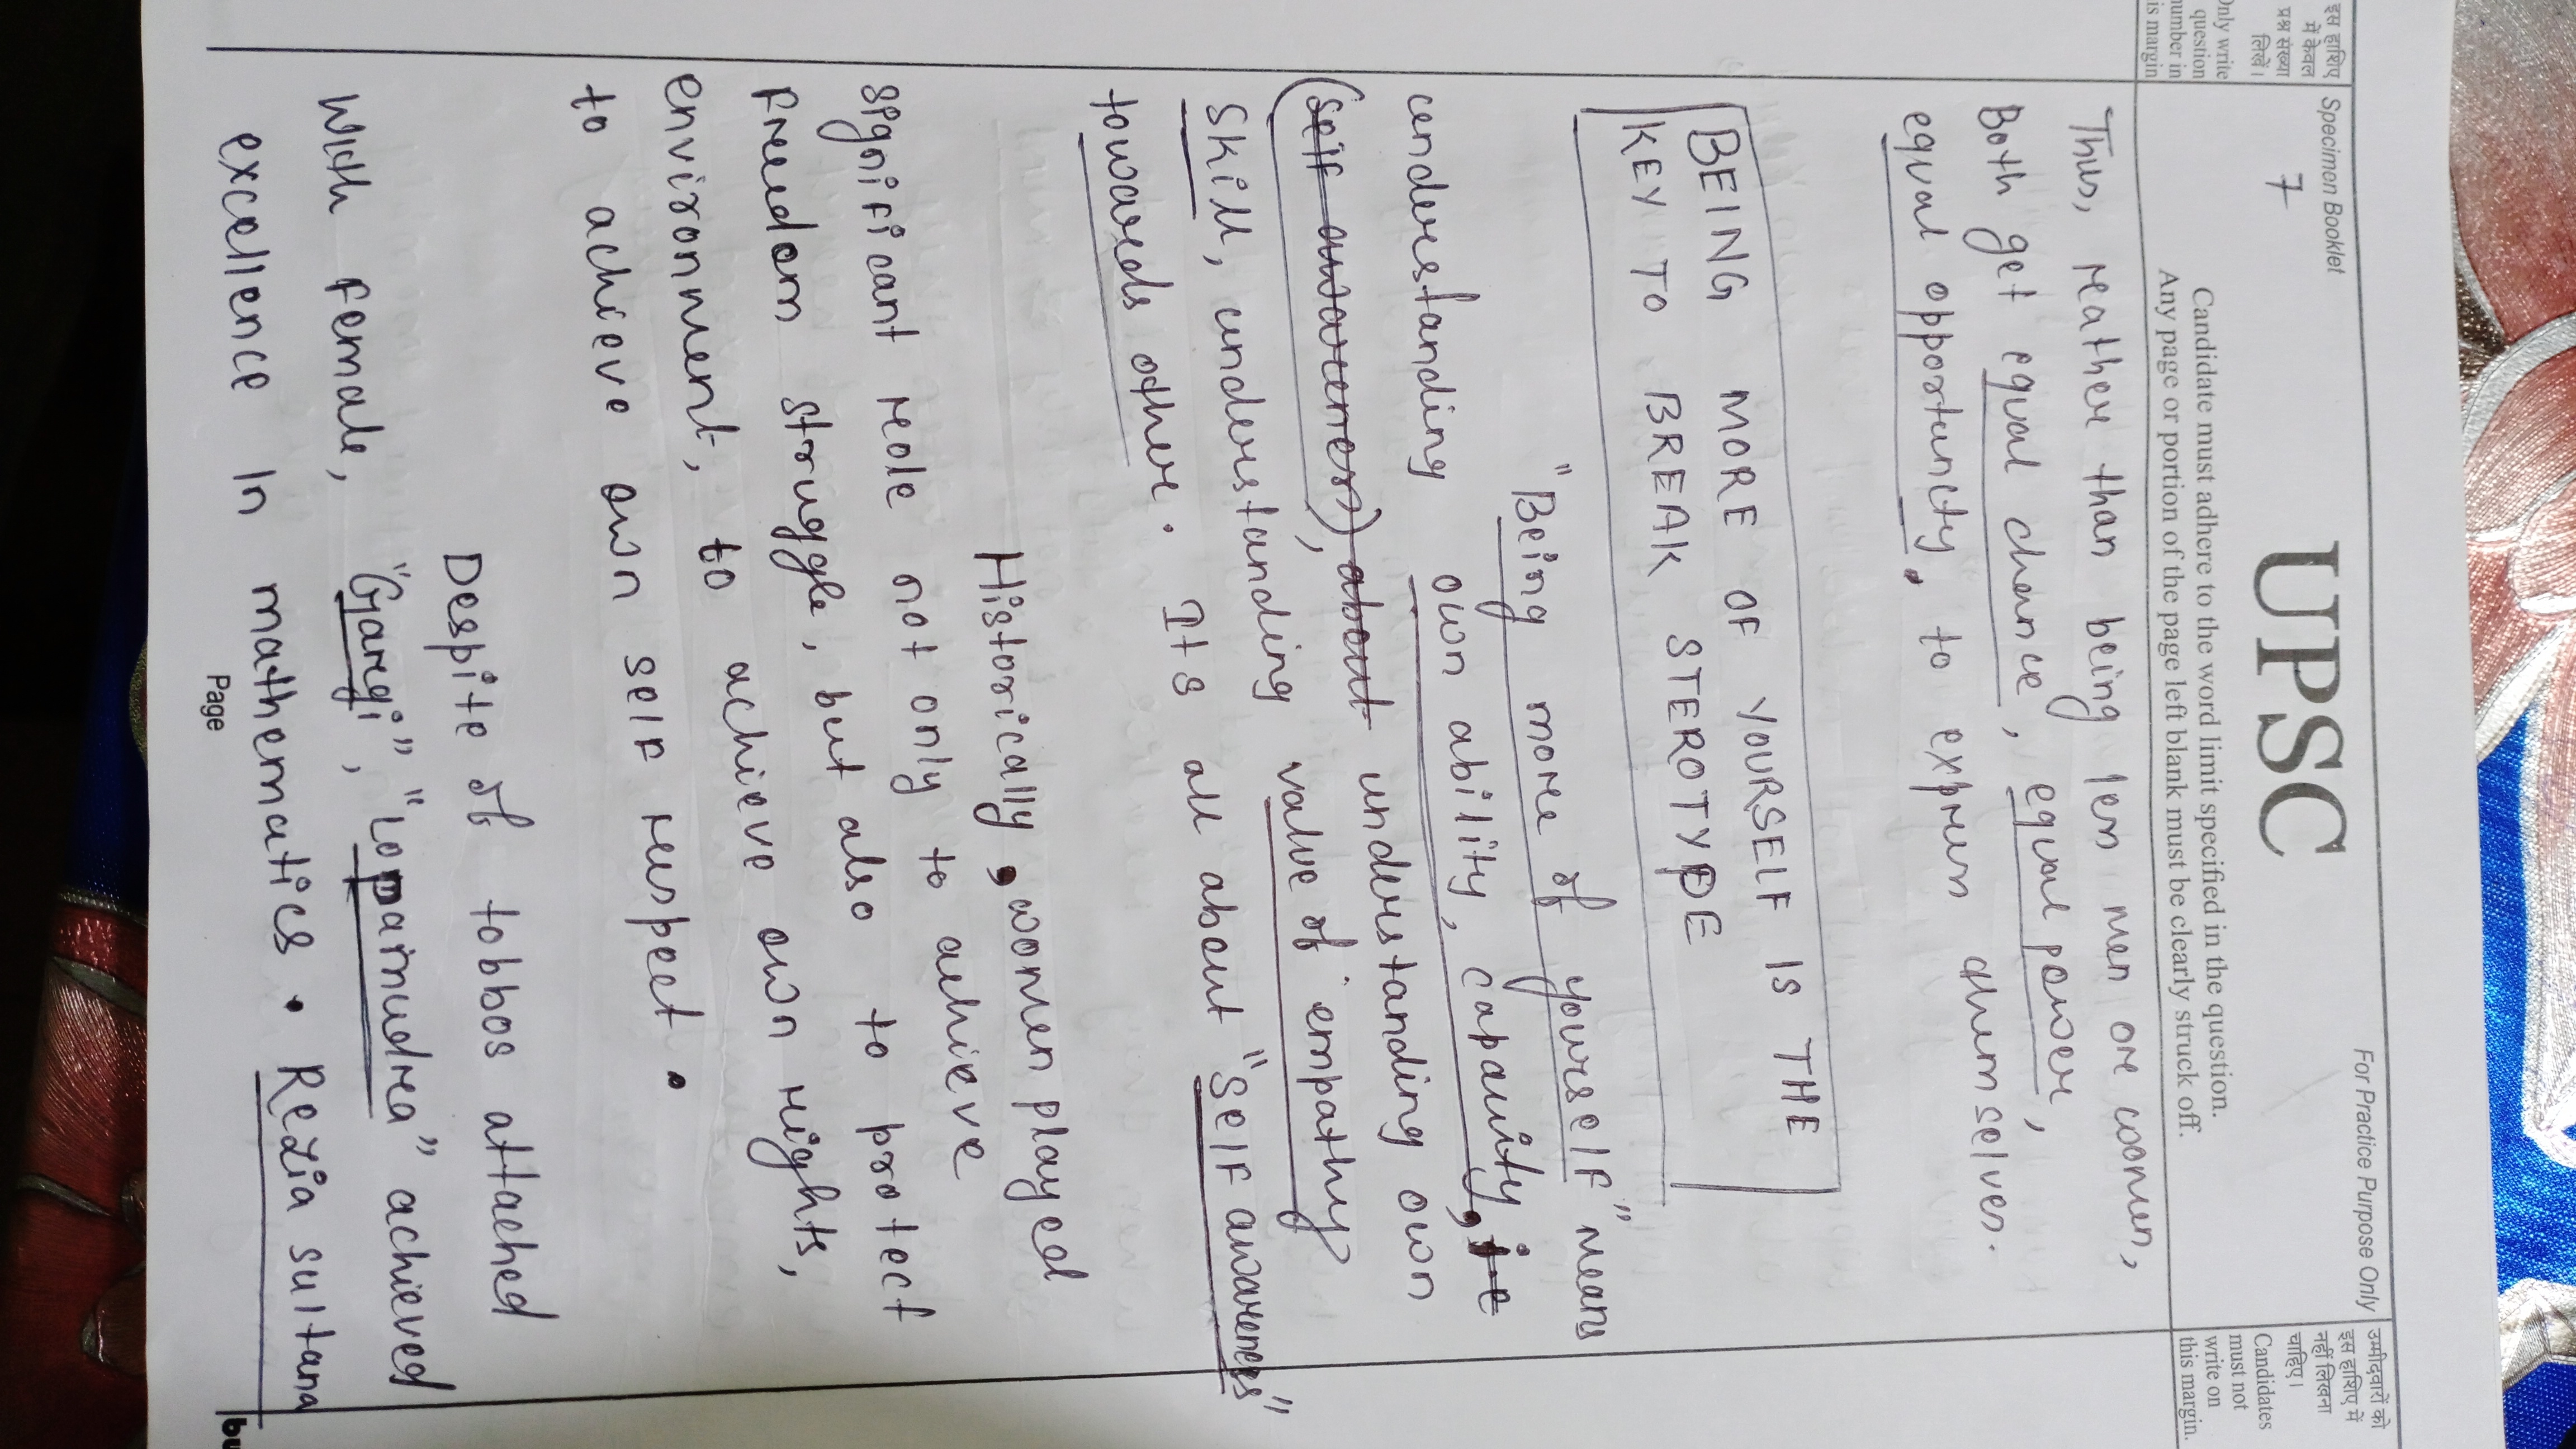 इस हाशिए
में केवल
प्रश्न संख्या
लिखें।
Only write
question
number in
this margin
Specimen Booklet
7
UPSC
For Practice Purpose Only
Candidate must adhere to the word limit specified in the question.
Any page or portion of the page left blank must be clearly struck off.
उम्मीदवारों को
इस हाशिए में
नहीं लिखना
चाहिए।
Candidates
must not
write on
this margin.
Thus, reather than being less men ore women,
Both get equal chance, equal power,
equal opportunity, to express themselves.
BEING MORE OF YOURSELF IS THE
KEY TO BREAK STEROTYPE
"Being more of yourself" means
understanding own ability, capacity,
(self awareness), about understanding own
skill, understanding value of empathy
towards other. Its all about "self awareness"
Historically, women played
significant role not only to achieve
freedom struggle, but also to protect
environment, to achieve own rights,
to achieve own self respect.
Despite of tobbos attached
with female, "Gargi", "Lopamudra" achieved
excellence in mathematics. Rezia sultana
Page